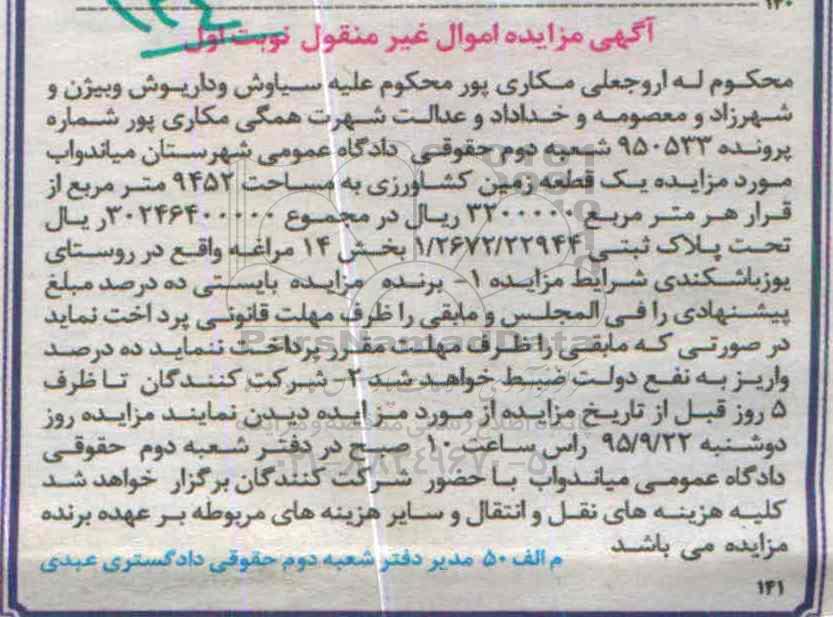 ۱۴۰
آگهی مزایده اموال غیر منقول نوبت اول
محکوم له اروجعلی مکاری پور محکوم علیه سیاوش وداریوش وبیژن و
شهرزاد و معصومه و خداداد و عدالت شهرت همگی مکاری پور شماره
پرونده ۹۵۰۵۳۳ شعبه دوم حقوقی دادگاه عمومی شهرستان میاندواب
مورد مزایده یک قطعه زمین کشاورزی به مساحت ۹۴۵۲ متر مربع از
قرار هر متر مربع ۳۲۰۰۰۰۰ ریال در مجموع ۳۰۲۴۶۴۰۰۰۰۰ ریال
تحت پلاک ثبتی ۱/۲۶۷۲/۲۲۹۴۴ بخش ۱۴ مراغه واقع در روستای
یوزباشکندی شرایط مزایده ۱- برنده مزایده بایستی ده درصد مبلغ
پیشنهادی را فی المجلس و مابقی را ظرف مهلت قانونی پرداخت نماید
در صورتی که مابقی را ظرف مهلت مقرر پرداخت ننماید ده درصد
واریز به نفع دولت ضبط خواهد شد ۲- شرکت کنندگان تا ظرف
۵ روز قبل از تاریخ مزایده از مورد مزایده دیدن نمایند مزایده روز
دوشنبه ۹۵/۹/۲۲ راس ساعت ۱۰ صبح در دفتر شعبه دوم حقوقی
دادگاه عمومی میاندواب با حضور شرکت کنندگان برگزار خواهد شد
کلیه هزینه های نقل و انتقال و سایر هزینه های مربوطه بر عهده برنده
مزایده می باشد
م الف ۵۰ مدیر دفتر شعبه دوم حقوقی دادگستری عبدی
۱۴۱
ParsNamadData
پایگاه اطلاع رسانی مناقصه و مزایده
۰۲۱-۸۸۳۴۹۶۷۰-۵